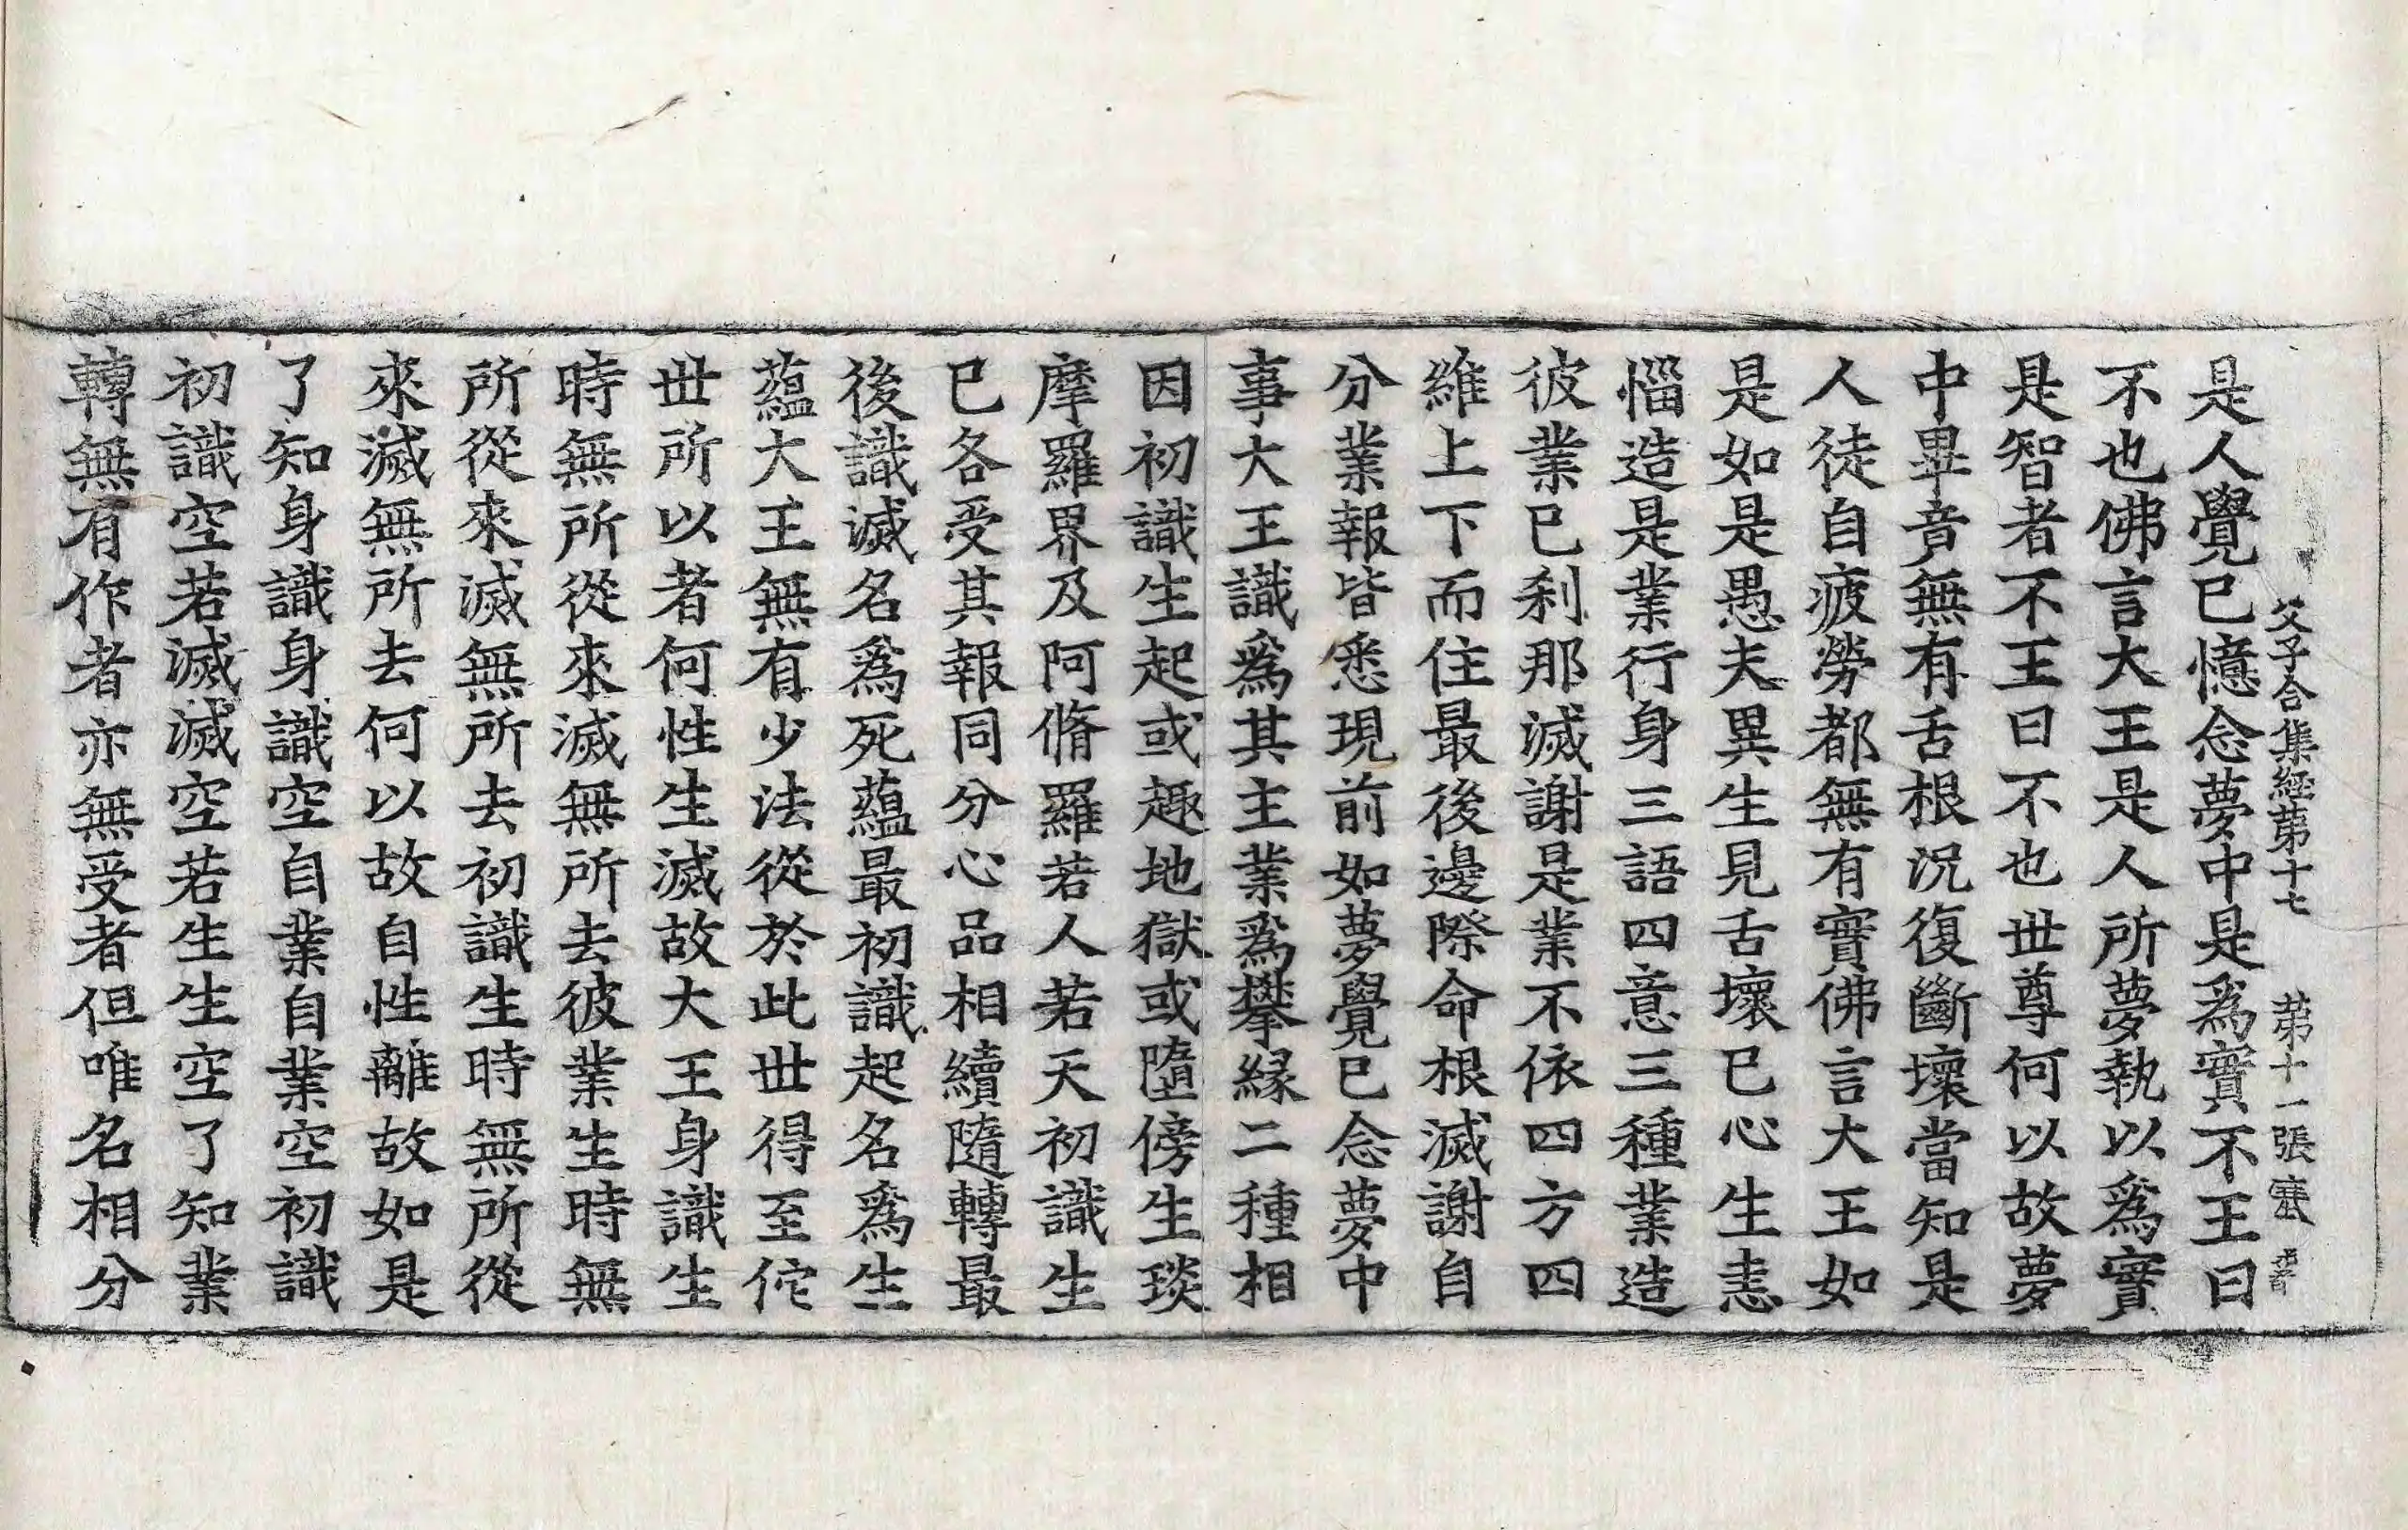 父子合集経苐十七 苐十一張 塞
是人覺已憶念夢中是爲實不王曰
不也佛言大王是人所夢執以爲實
是智者不王曰不也世尊何以故夢
中畢竟無有舌根況復斷壞當知是
人徒自疲勞都無有實佛言大王如
是如是愚夫異生見舌壞已心生恚
惱造是業行身三語四意三種業造
彼業已刹那滅謝是業不依四方四
維上下而住最後邊際命根滅謝自
分業報皆悉現前如夢覺已念夢中
事大王識爲其主業爲攀縁二種相
因初識生起或趣地獄或墮傍生琰
摩羅界及阿脩羅若人若天初識生
已各受其報同分心品相續隨轉最
後識滅名爲死蘊最初識起名爲生
蘊大王無有少法從於此世得至佗
世所以者何性生滅故大王身識生
時無所從來滅無所去彼業生時無
所從來滅無所去初識生時無所從
來滅無所去何以故自性離故如是
了知身識身識空自業自業空初識
初識空若滅滅空若生生空了知業
轉無有作者亦無受者但唯名相分